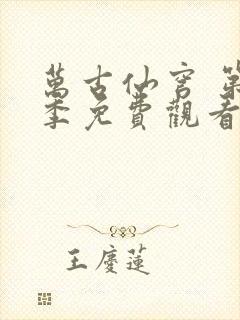 萬古仙穹 第
季免費觀看
王慶蓮